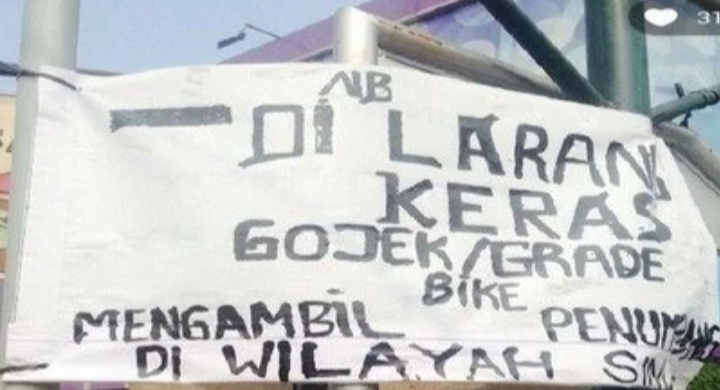 31
NB
- Di LARANG
KERAS
GOJEK/GRADE
BiKE
MENGAMBiL PENUMPANG
Di WILAYAH